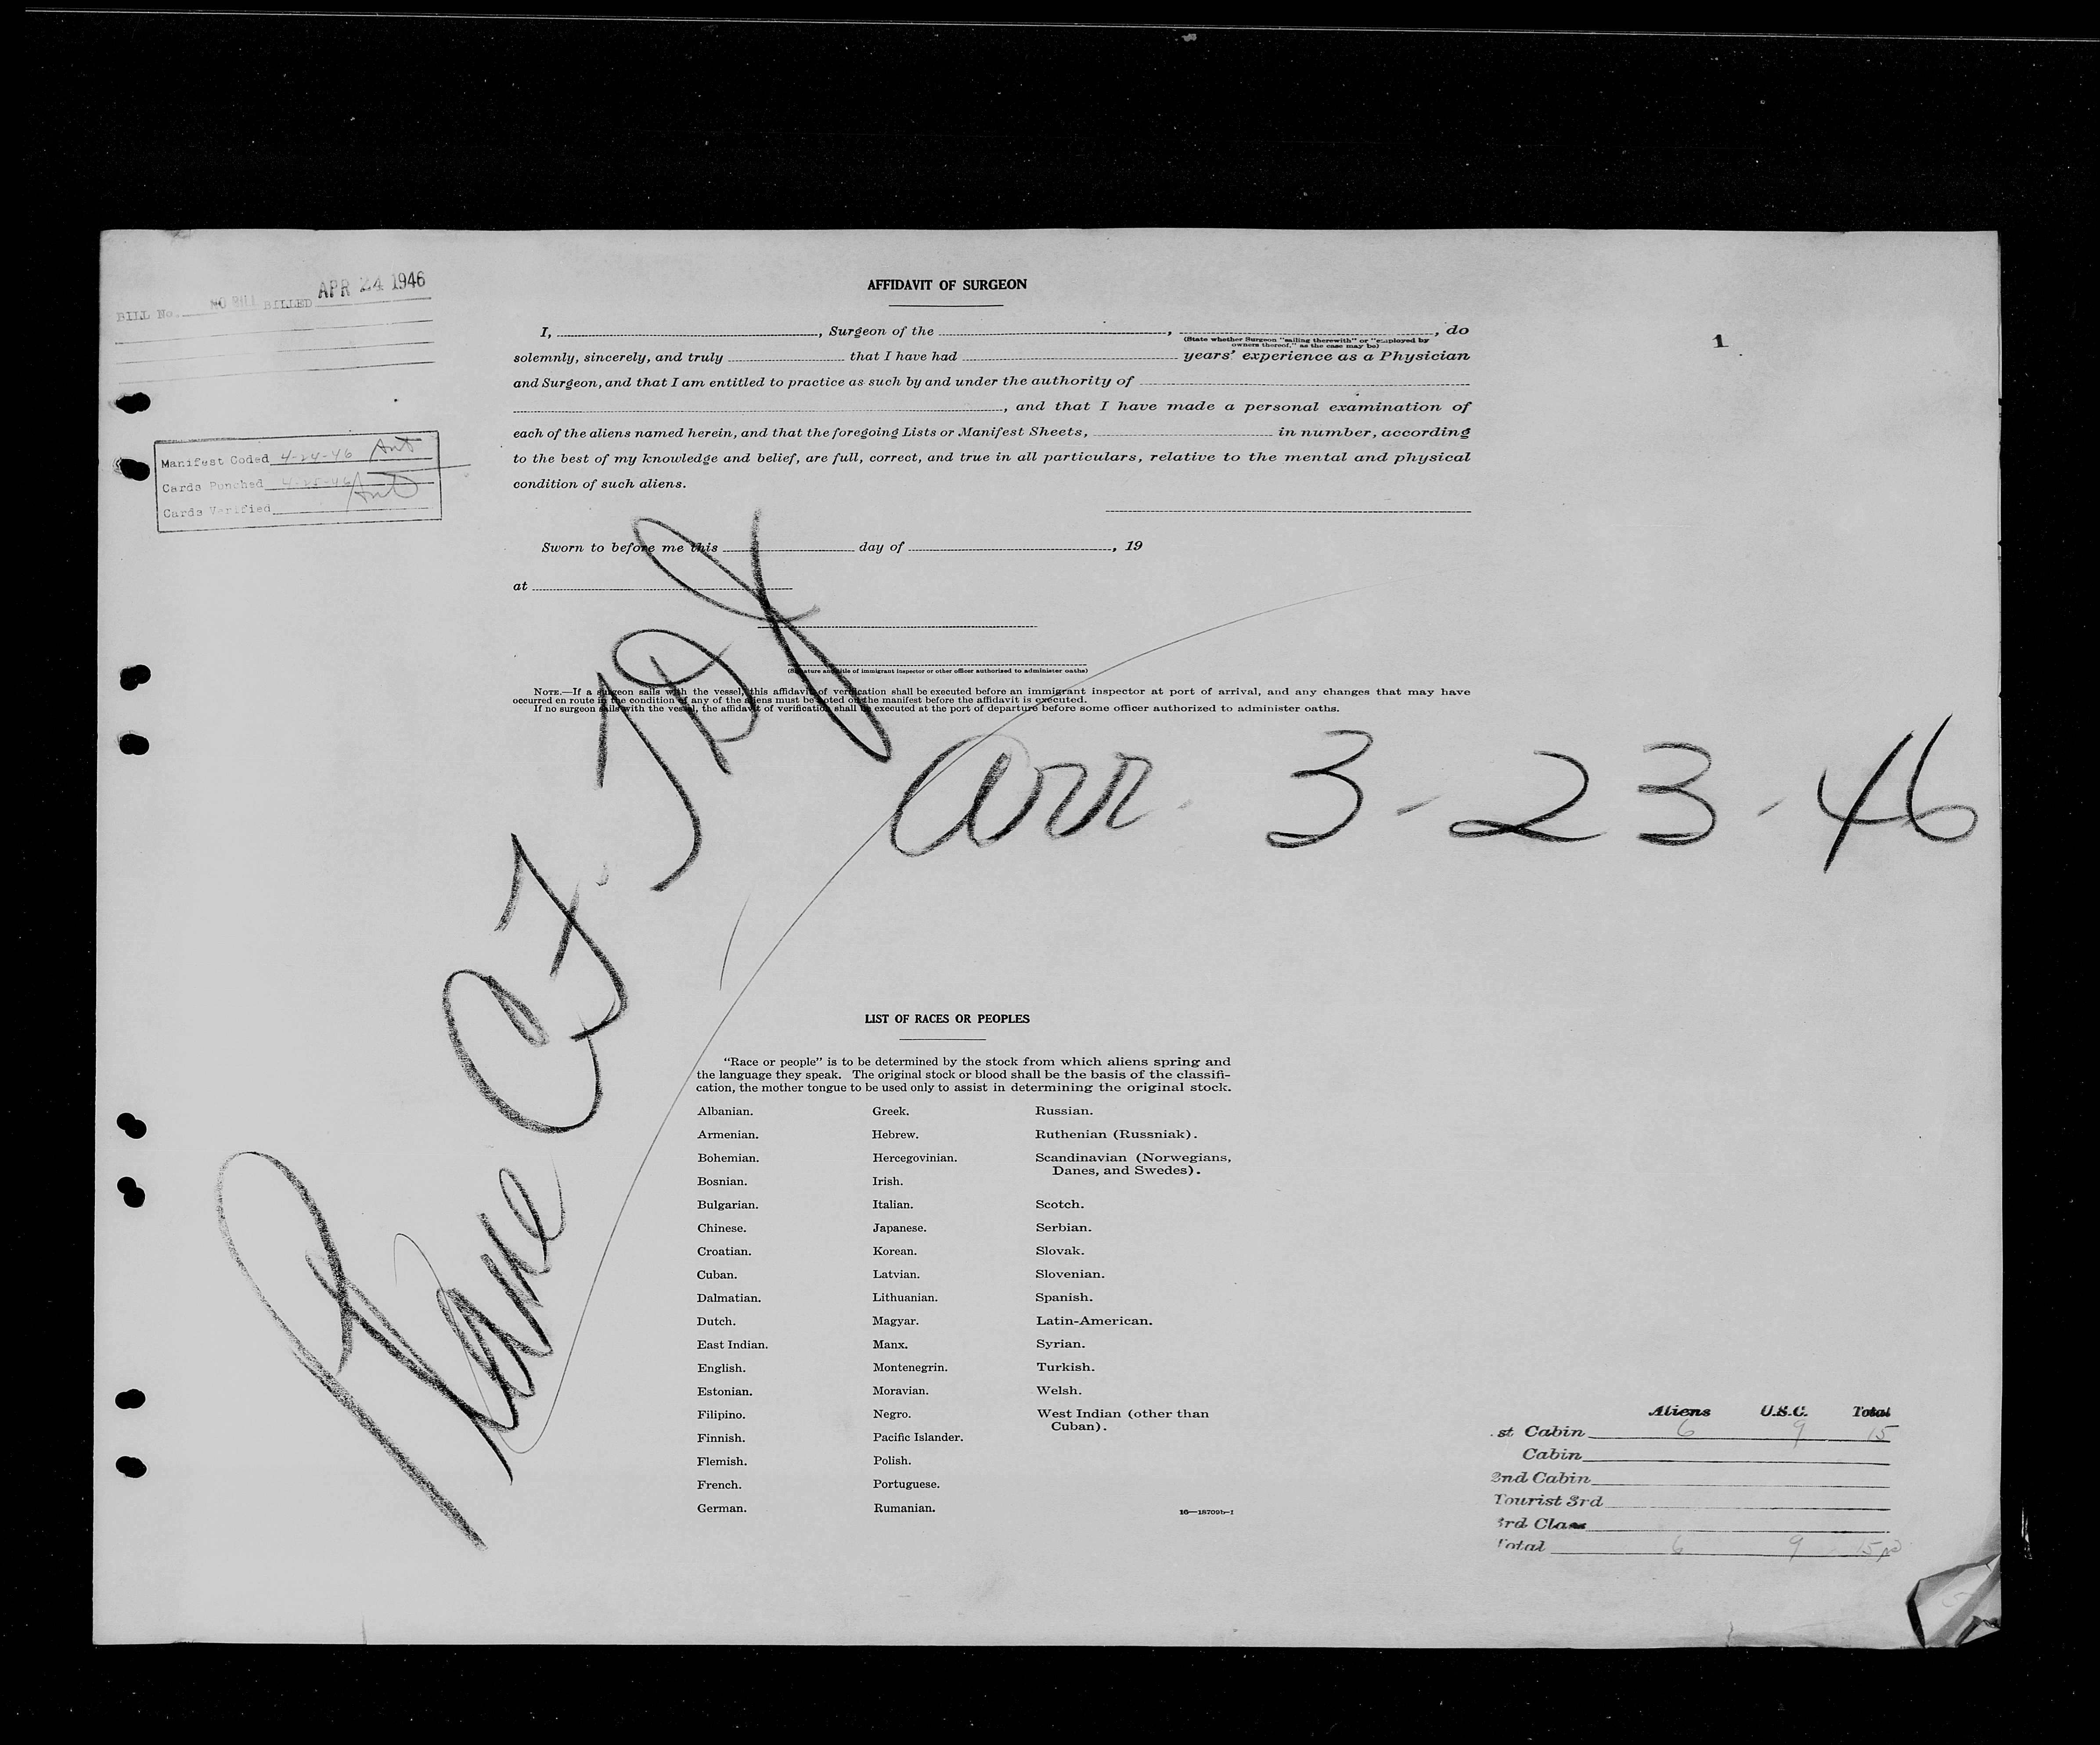 BILL No. NO BILL BILLED APR 24 1946
Manifest Coded 4-24-46
Cards Punched 4-25-46
Cards Verified
AFFIDAVIT OF SURGEON
1
I, , Surgeon of the , , do
(State whether Surgeon "sailing therewith" or "employed by
owners thereof," as the case may be)
solemnly, sincerely, and truly that I have had years' experience as a Physician
and Surgeon, and that I am entitled to practice as such by and under the authority of
, and that I have made a personal examination of
each of the aliens named herein, and that the foregoing Lists or Manifest Sheets, in number, according
to the best of my knowledge and belief, are full, correct, and true in all particulars, relative to the mental and physical
condition of such aliens.
Sworn to before me this day of , 19
at
(Signature and title of immigrant inspector or other officer authorized to administer oaths)
NOTE.—If a surgeon sails with the vessel, this affidavit of verification shall be executed before an immigrant inspector at port of arrival, and any changes that may have
occurred en route in the condition of any of the aliens must be noted on the manifest before the affidavit is executed.
If no surgeon sails with the vessel, the affidavit of verification shall be executed at the port of departure before some officer authorized to administer oaths.
Plane CF.
arr. 3-23-46
LIST OF RACES OR PEOPLES
"Race or people" is to be determined by the stock from which aliens spring and
the language they speak. The original stock or blood shall be the basis of the classifi-
cation, the mother tongue to be used only to assist in determining the original stock.
Albanian.
Armenian.
Bohemian.
Bosnian.
Bulgarian.
Chinese.
Croatian.
Cuban.
Dalmatian.
Dutch.
East Indian.
English.
Estonian.
Filipino.
Finnish.
Flemish.
French.
German.
Greek.
Hebrew.
Hercegovinian.
Irish.
Italian.
Japanese.
Korean.
Latvian.
Lithuanian.
Magyar.
Manx.
Montenegrin.
Moravian.
Negro.
Pacific Islander.
Polish.
Portuguese.
Rumanian.
Russian.
Ruthenian (Russniak).
Scandinavian (Norwegians,
Danes, and Swedes).
Scotch.
Serbian.
Slovak.
Slovenian.
Spanish.
Latin-American.
Syrian.
Turkish.
Welsh.
West Indian (other than
Cuban).
16—18709b-1
Aliens U.S.C. Total
st Cabin 6 9 15
Cabin
2nd Cabin
Tourist 3rd
3rd Class
Total 6 9 15